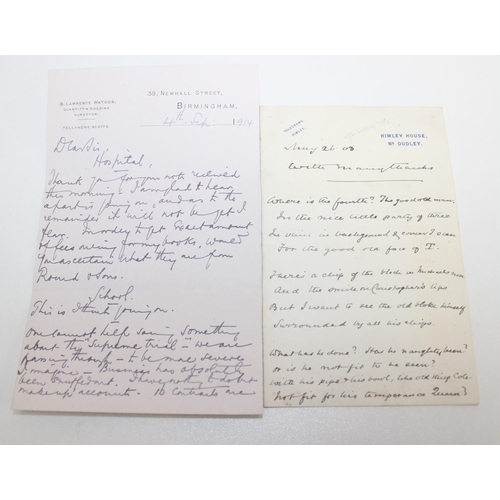 G. LAWRENCE MATSON,
QUANTITY & BUILDING
SURVEYOR.
58, NEWHALL STREET,
BIRMINGHAM,
4th Sep 1914
Dear Sir,
Hospital,
Thank you for your note received
this morning. I am glad to hear
apart is going on, and as to the
remainder it will not be yet I
fear. In order to get exact amount
of fees owing for my books, would
you ascertain what they are from
Round & Sons.
School.
This is I think going on.
One cannot help saying something
about the supreme trial - we are
passing through - to be more severe
I imagine - Business has absolutely
been snuffed out. I have not
make up account. 10 contracts are
HIMLEY HOUSE,
Nr DUDLEY.
Aug 26 03
With many thanks
Where is the fourth? The good old man,
In this nice little party of three
In vain in background & corner I scan
For the good old face of T.
There's a chip of the block in
And the smile on Christopher's lips
But I want to see the old bloke himself
Surrounded by all his chips
What has he done? Has he naughty been?
or is he not fit to be seen?
With his pipe & his bowl, like old King Cole
Not fit for his temperance Queen?